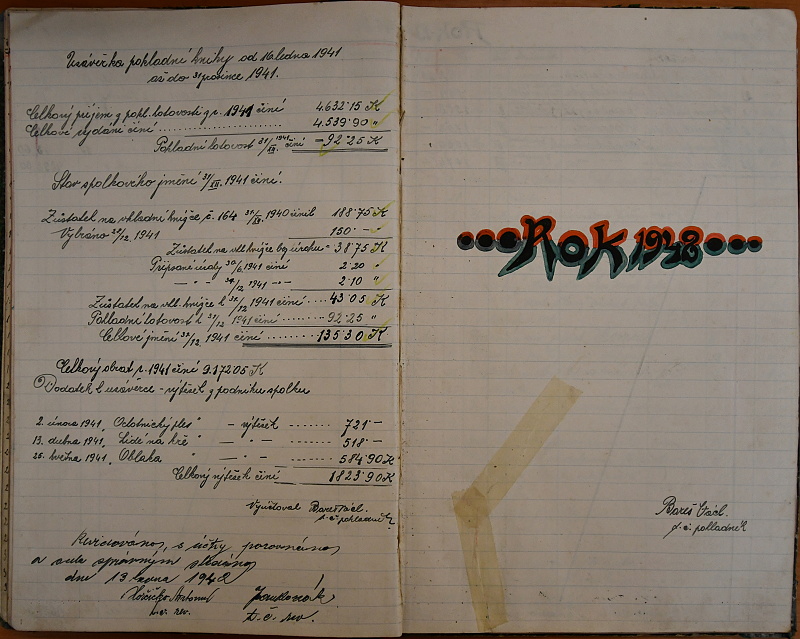 Uzávěrka pokladní knihy od 1. ledna 1941
až do 31. prosince 1941.
Celkový příjem z pokl. hotovosti z r. 1941 činí 4.632.15 K
Celkové vydání činí .................. 4.539.90 "
Pokladní hotovost 31/XII. 1941 činí -92.25 K
Stav spolkového jmění 31/XII. 1941 činí.
Zůstatek na vkladní knížce č. 164 31/XII. 1940 činil 188.75 K
Vybráno 22/12. 1941 150.- "
Zůstatek na vkl. knížce bez úroku - 38.75 K
Připsané úroky 30/6 1941 činí 2.20 "
- " - " 31/12 1941 - " - 2.10 "
Zůstatek na vkl. knížce k 31/12 1941 činí .... 43.05 K
Pokladní hotovost k 31/12 1941 činí ...... 92.25 "
Celkové jmění 31/12. 1941 činí ........ 135.30 K
Celkový obrat r. 1941 činí 9.172.05 K
Dodatek k uzávěrce - výtěžek z podniků spolku
2. února 1941, Ochotnický ples " - výtěžek ....... 721.-
13. dubna 1941, Lidé na kře " - " - ....... 518.-
25. května 1941, Oblaka " - " - ....... 584.90 K
Celkový výtěžek činí 1823.90 K
Vyúčtoval Bareš Václ.
t. č. pokladník
Revidováno, s účty porovnáno
a vše správným shledáno
dne 13. ledna 1942
Antonín
t. č. rev. t. č. rev.
Rok 1942
Bareš Václ.
t. č. pokladník